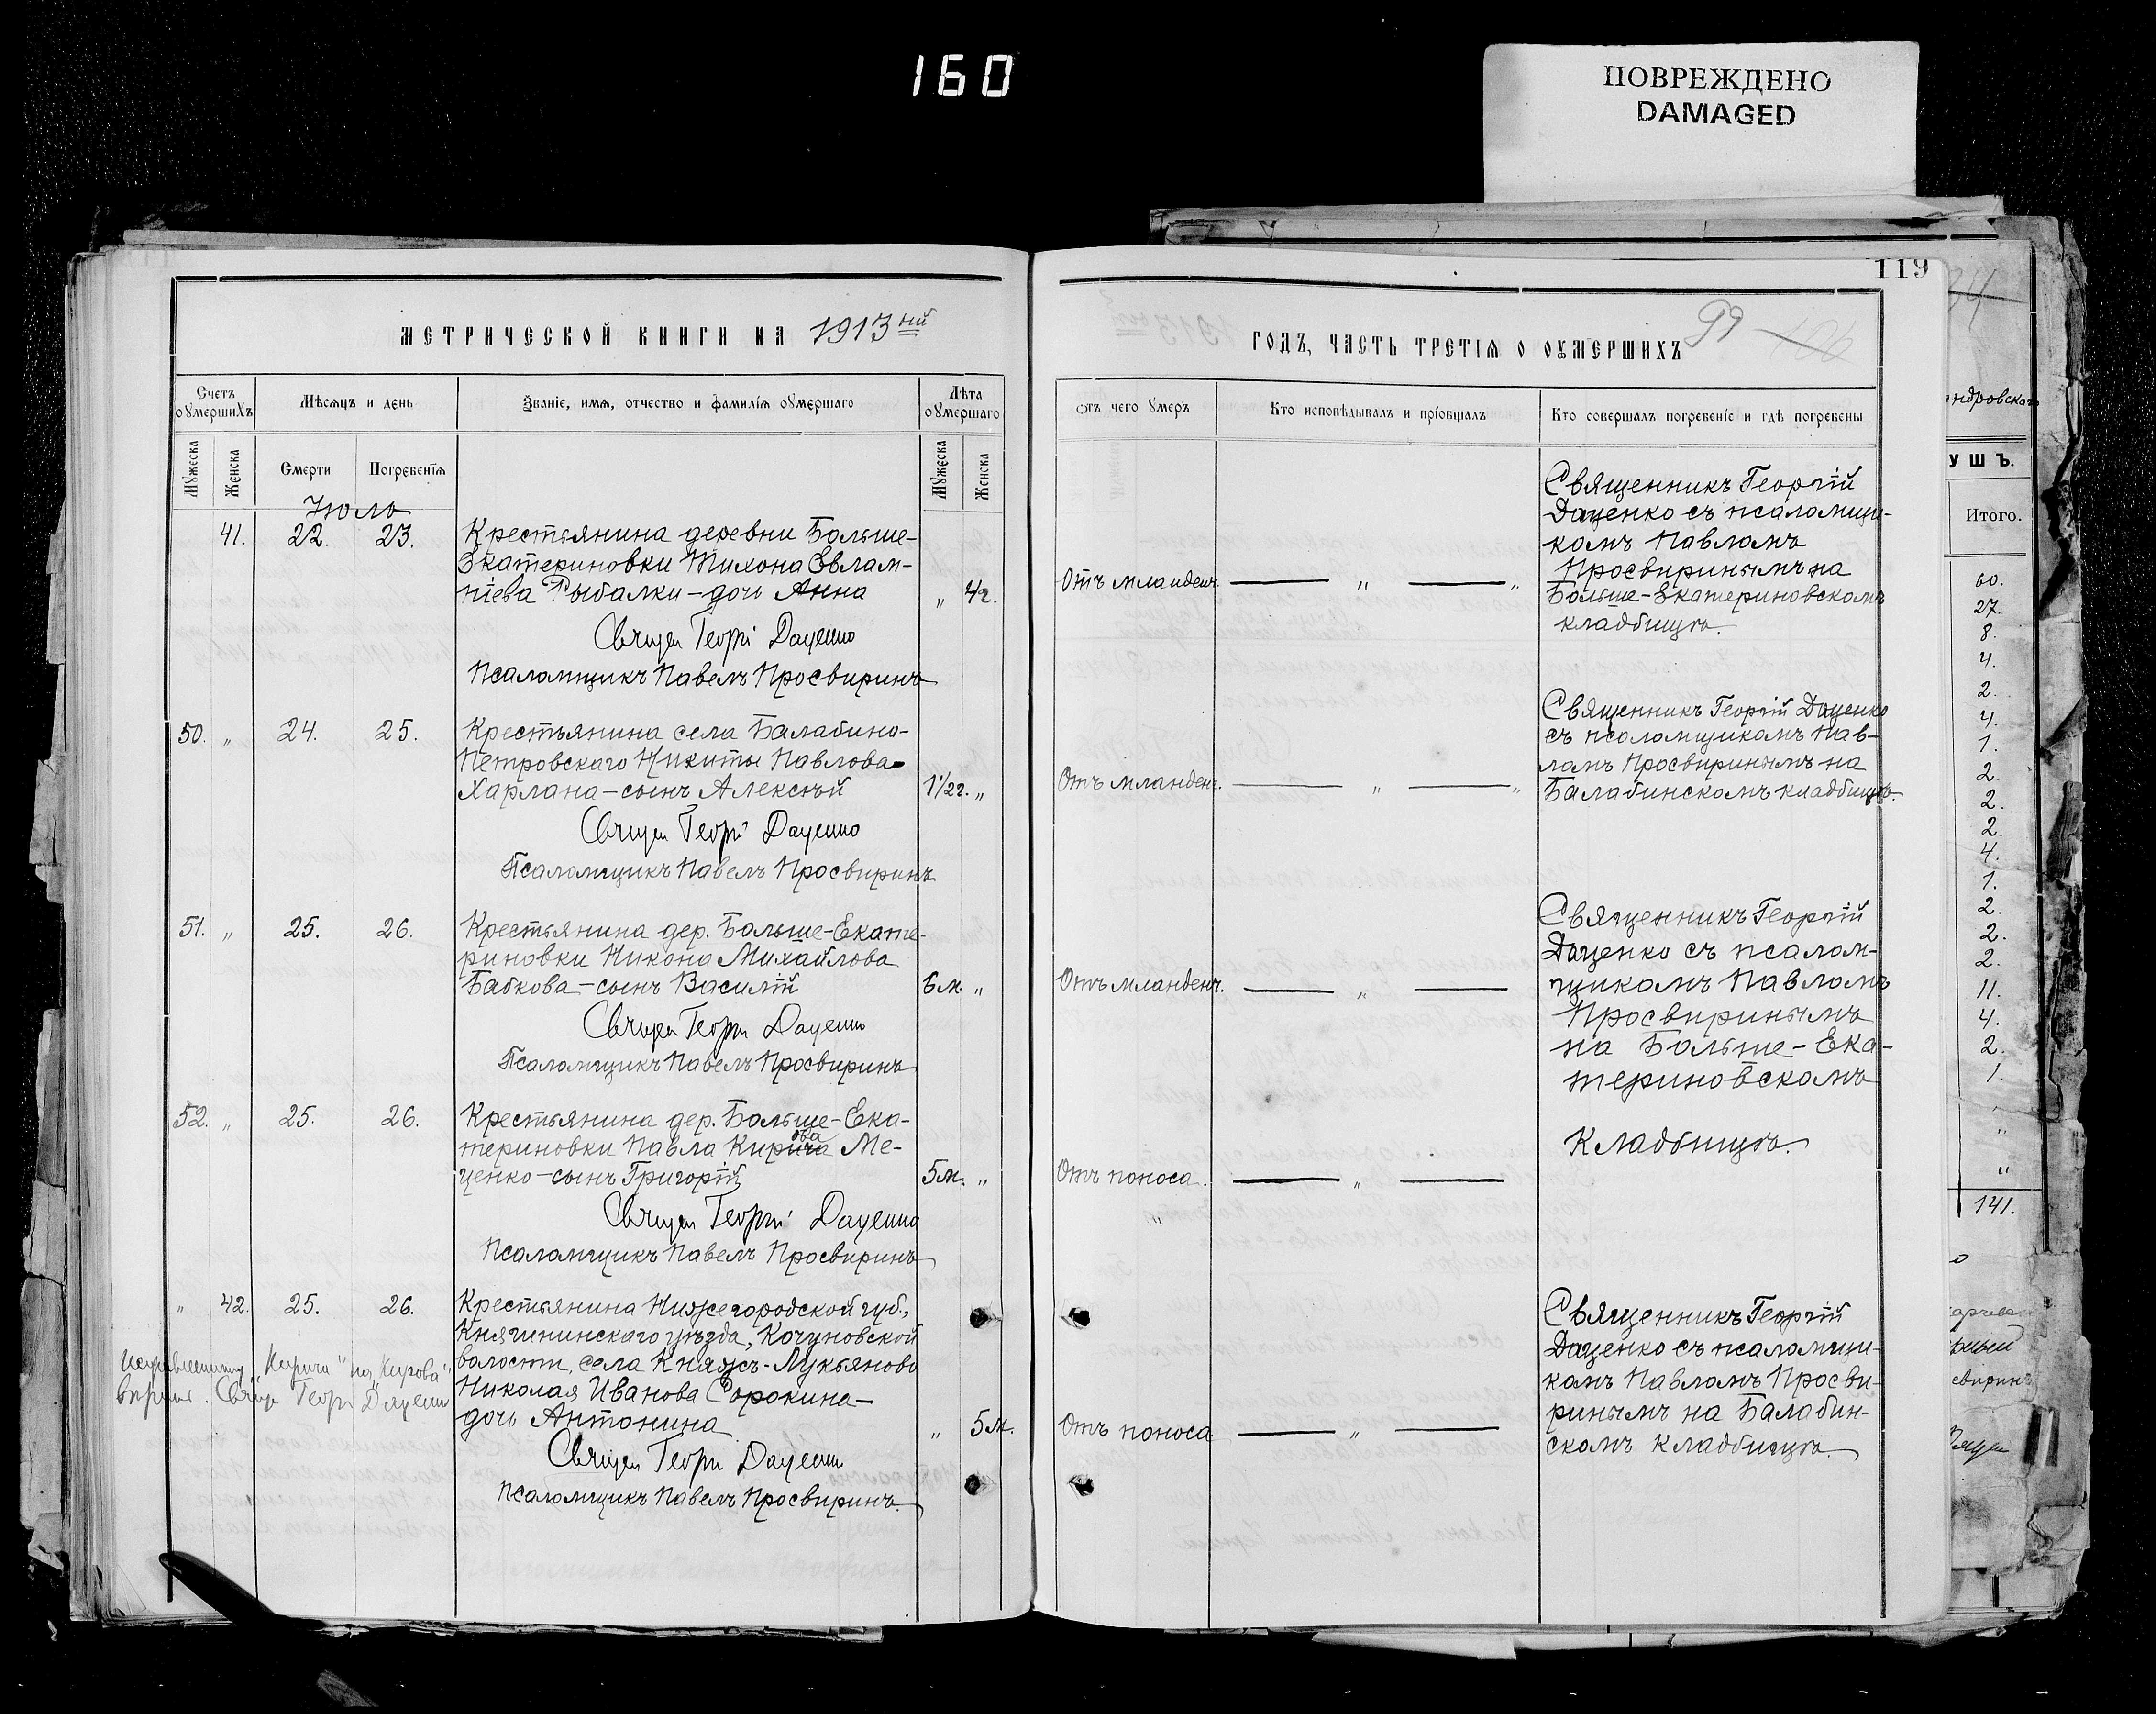 160
ПОВРЕЖДЕНО
DAMAGED
119
МЕТРИЧЕСКОЙ КНИГИ НА 1913ый
Счетъ оумершихъ
Мѣсяцъ и день
Званіе, имя, отчество и фамилія оумершаго
Лѣта оумершаго
Мужеска
Женска
Смерти
Погребенія
Мужеска
Женска
Іюль
41. 22. 23. Крестьянина деревни Больше-
Екатериновки Тихона Евлам-
піева Рыбалки – дочь Анна „ 4г.
Священ Георгі Даценко
Псаломщикъ Павелъ Просвиринъ
50. „ 24. 25. Крестьянина села Балабино-
Петровскаго Никиты Павлова
Харлана – сынъ Алексѣй 1½г. „
Священ Георгі Даценко
Псаломщикъ Павелъ Просвиринъ
51. „ 25. 26. Крестьянина дер. Больше-Екате-
риновки Никона Михайлова
Бабкова – сынъ Василій 6м. „
Священ Георгі Даценко
Псаломщикъ Павелъ Просвиринъ
52. „ 25. 26. Крестьянина дер. Больше-Ека-
териновки Павла Кирича ова Ме-
ценко – сынъ Григорій 5м. „
Священ Георгі Даценко
Псаломщикъ Павелъ Просвиринъ
„ 42. 25. 26. Крестьянина Нижегородской губ.,
Княгининскаго уѣзда, Кочуновской
волости, села Княжъ-Лукьяново
Николая Иванова Сорокина –
дочь Антонина „ 5м.
Священ Георгі Даценко
Псаломщикъ Павелъ Просвиринъ.
исправленному „Кирича" на „Кирова"
вѣрить. Свящ Георгі Даценко
99 106
ГОДЪ, ЧАСТЬ ТРЕТІЯ О ОУМЕРШИХЪ
Отъ чего умеръ
Кто исповѣдывалъ и пріобщалъ
Кто совершалъ погребеніе и гдѣ погребены
Отъ младенч. „ „
Священникъ Георгій
Даценко съ псаломщи-
комъ Павломъ
Просвиринымъ на
Больше-Екатериновскомъ
кладбищѣ.
Отъ младенч. „ „
Священникъ Георгій Даценко
съ псаломщикомъ Пав-
ломъ Просвиринымъ на
Балабинскомъ кладбищѣ.
Отъ младенч. „
Священникъ Георгій
Даценко съ псалом-
щикомъ Павломъ
Просвиринымъ
на Больше-Ека-
териновскомъ
кладбищѣ.
Отъ поноса. „
„
Отъ поноса „
Священникъ Георгій
Даценко съ псаломщи-
комъ Павломъ Просви-
ринымъ на Балабин-
скомъ кладбищѣ.
34
ндровскаго
УШЪ.
Итого.
60.
27.
8.
4.
2.
4.
1.
2.
2.
2.
4.
1.
2.
2.
2.
11.
4.
2.
1.
„
„
„
141.
свиринъ